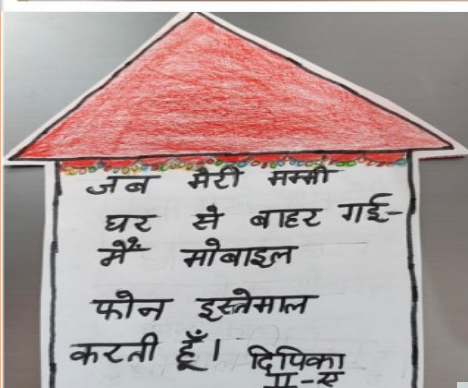 जब मेरी मम्मी
घर से बाहर गई-
मैं मोबाइल
फोन इस्तेमाल
करती हूँ। दिपिका
II-ए